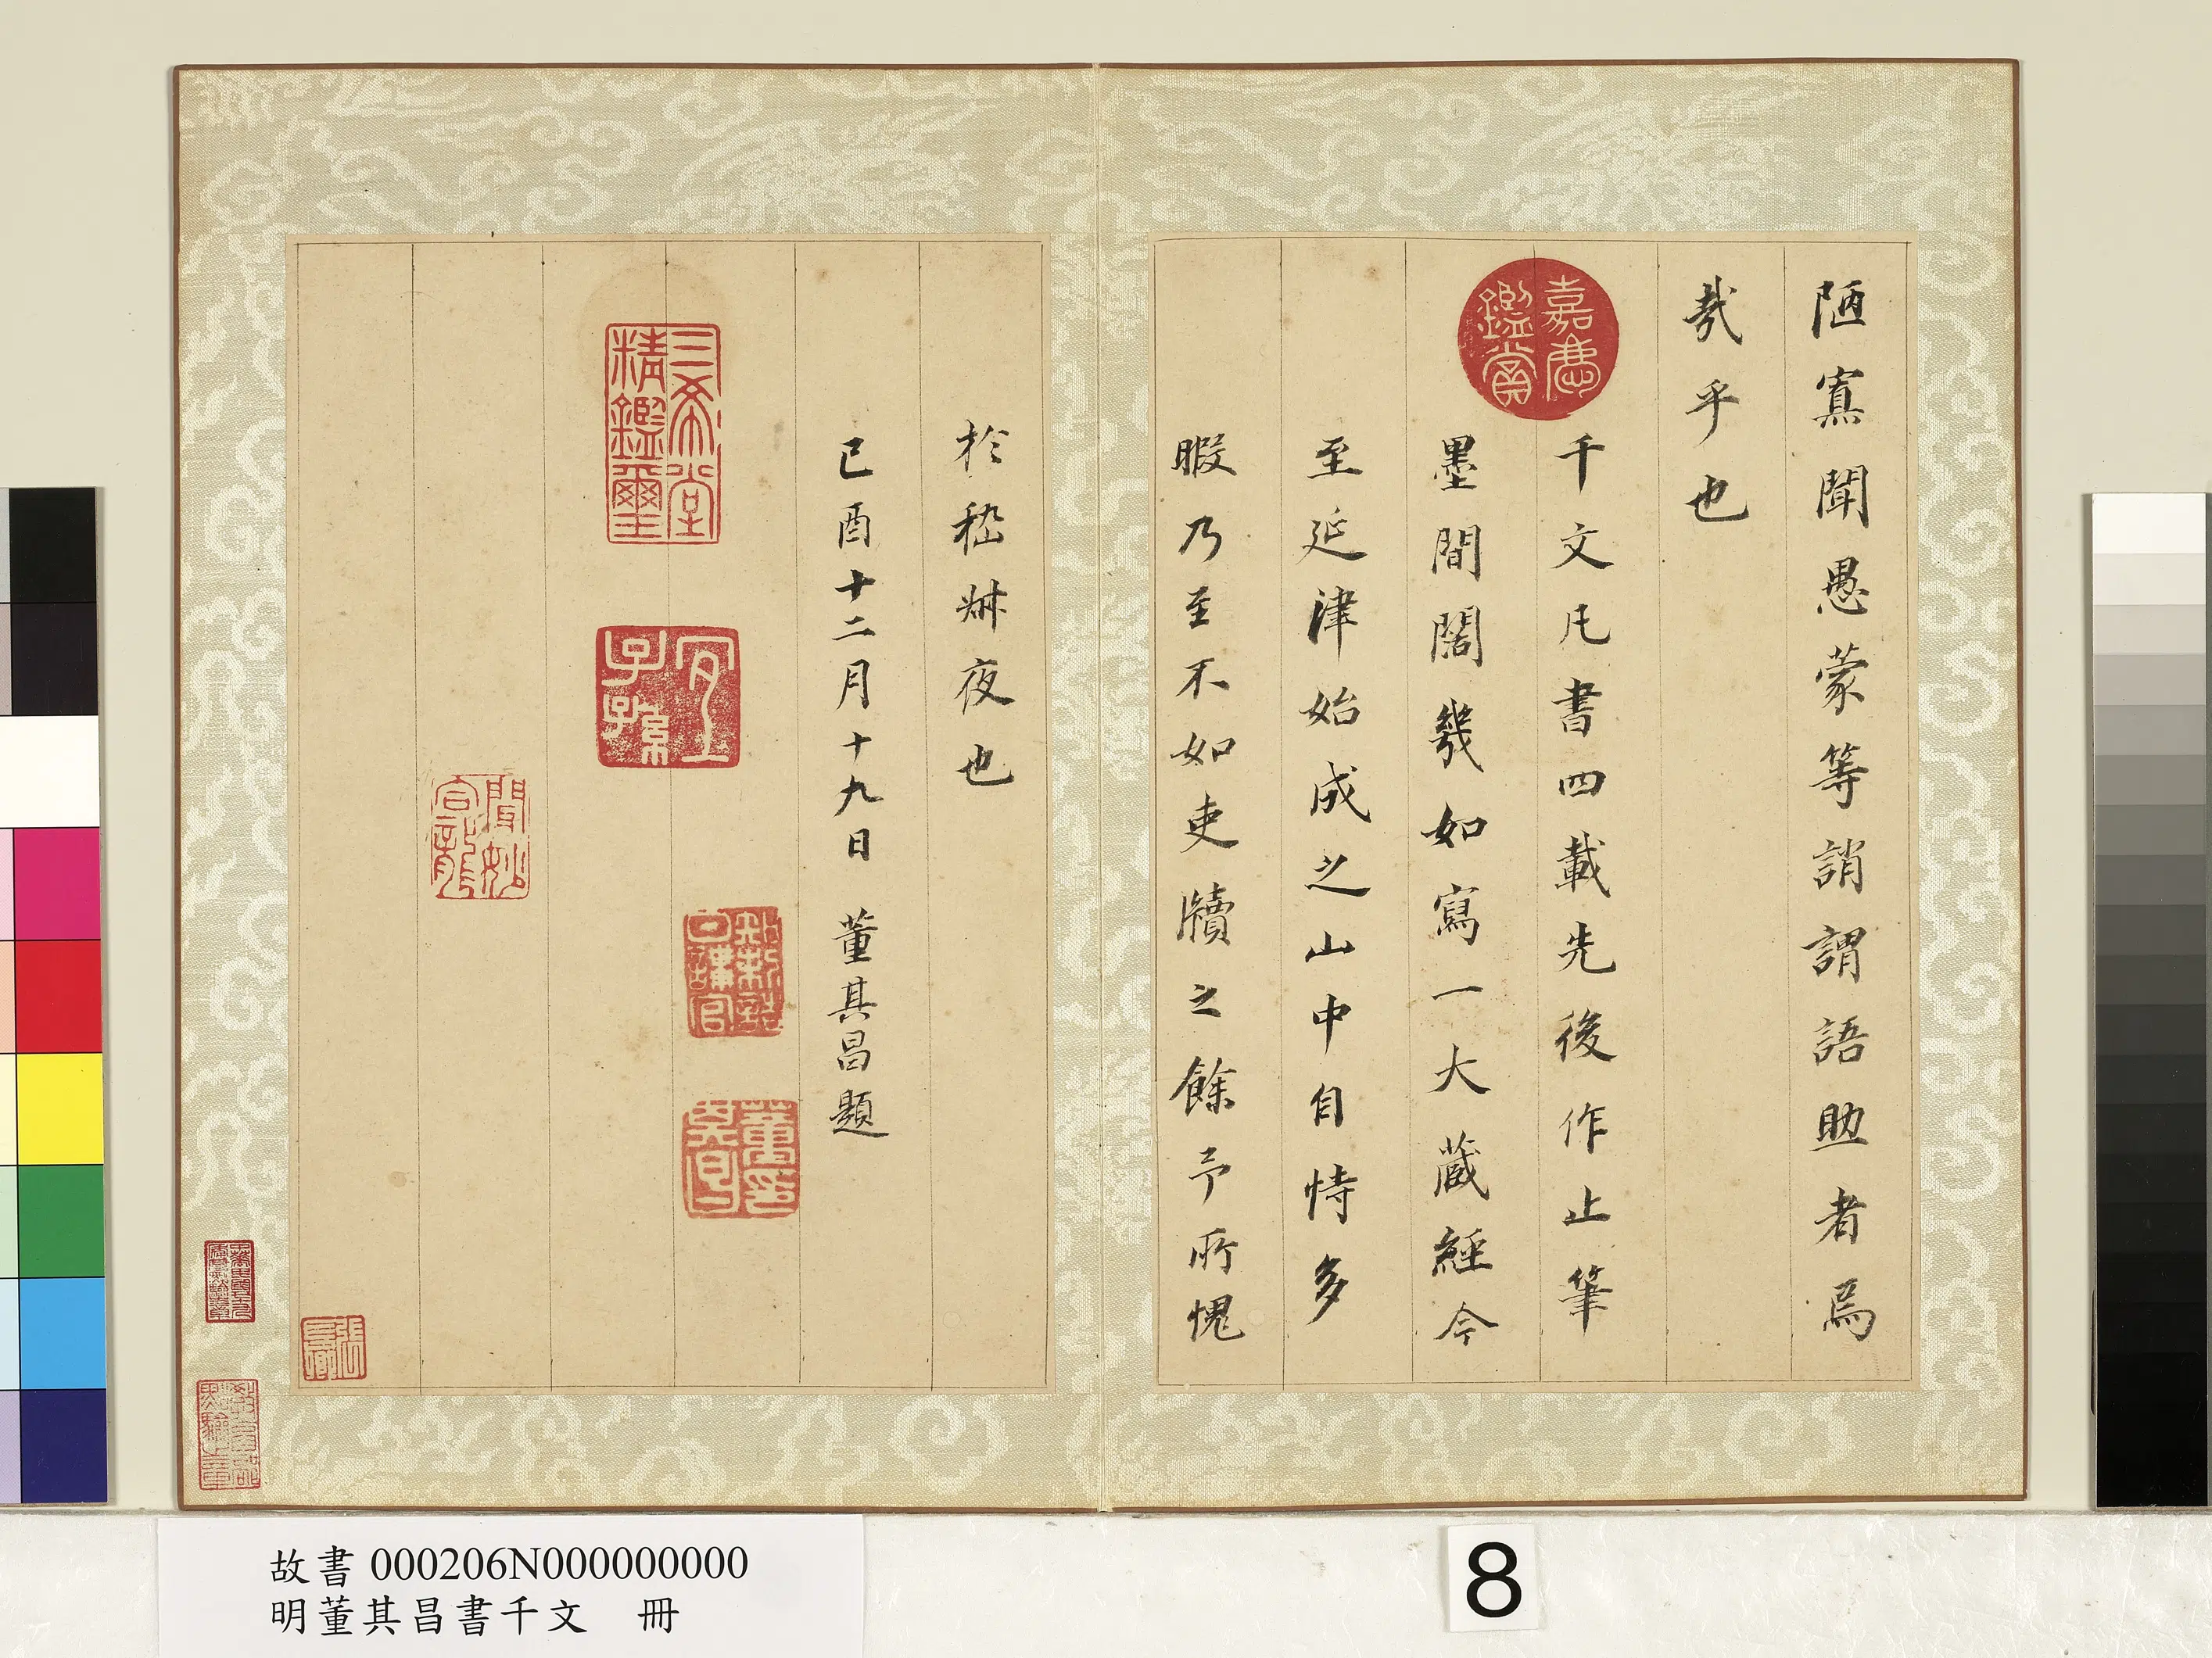 陋寡聞愚蒙等誚謂語助者焉
哉乎也
千文凡書四載先後作止筆
墨間闊幾如寫一大藏經今
至延津始成之山中自恃多
暇乃至不如吏牘之餘予所愧
於嵇𤇆夜也
己酉十二月十九日 董其昌題
嘉慶
鑑賞
三希堂
精鑑璽
宜
子孫
知制誥
日講官
董其
昌印
故書 000206N000000000
明董其昌書千文 冊
8